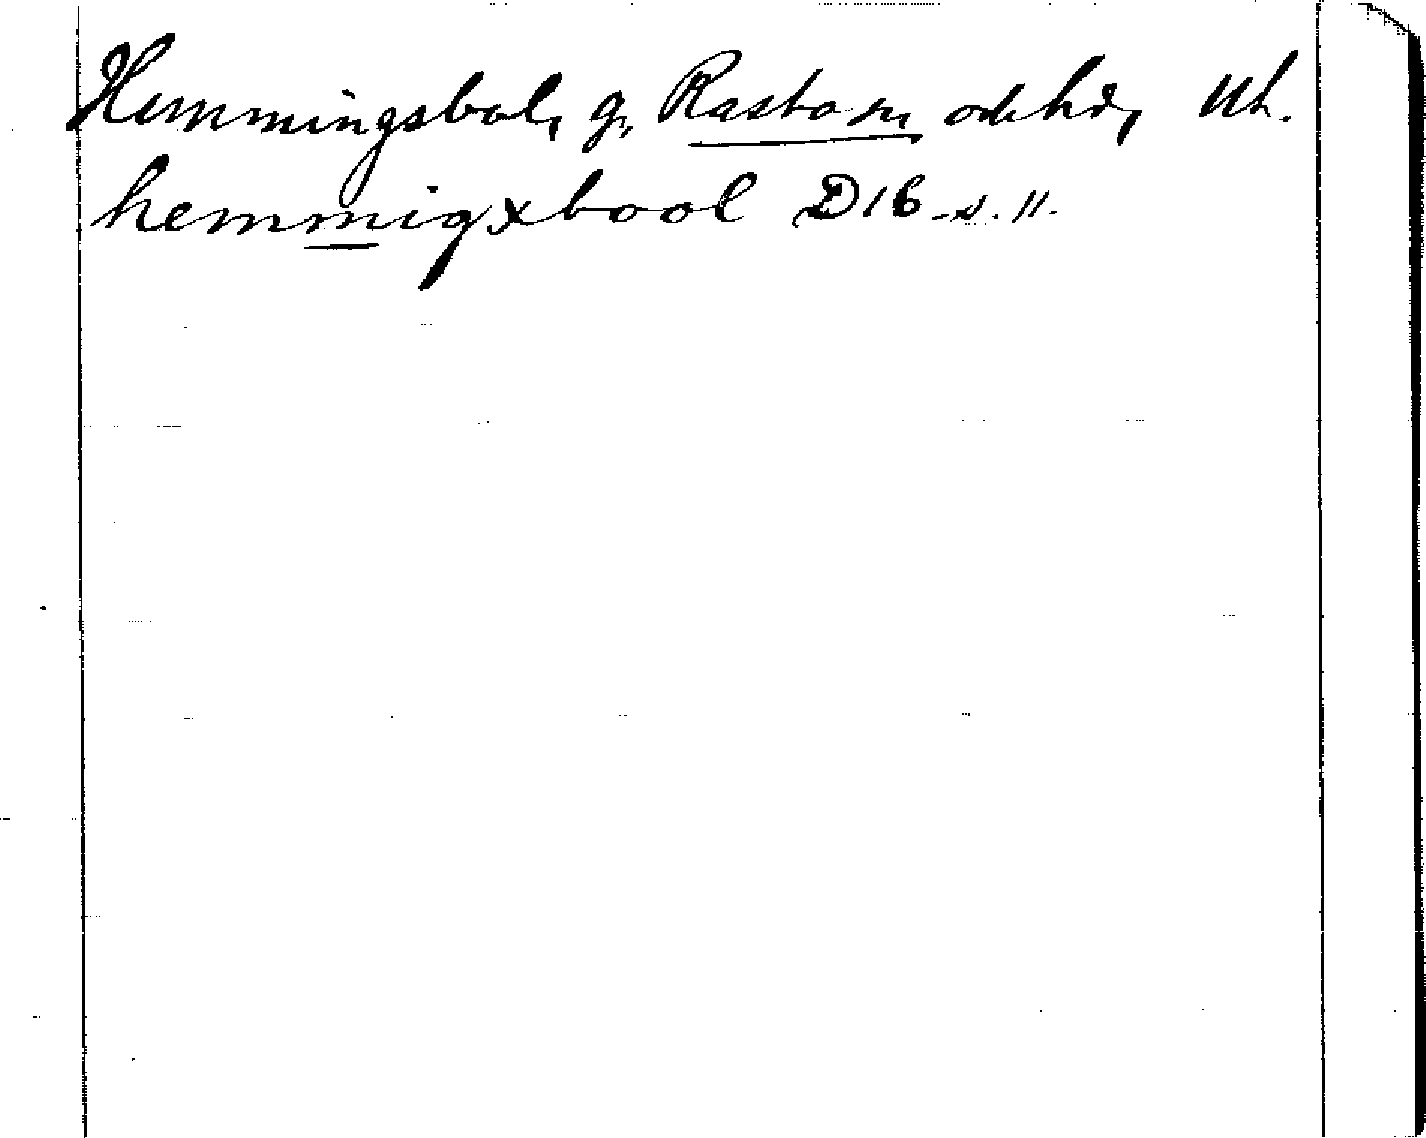 Hemmingsbol, g, Rasbo sn, och hd, Uh.
hemmigxbool D16 s. 11.